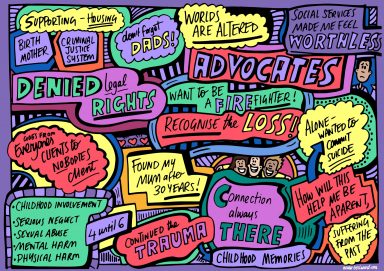 SUPPORTING - HOUSING
BIRTH
MOTHER
CRIMINAL
JUSTICE
SYSTEM
don't forget
DADS!
WORLDS
ARE ALTERED
SOCIAL SERVICES
MADE ME FEEL
WORTHLESS
ADVOCATES
DENIED legal
RIGHTS
WANT to BE
A FIREFIGHTER!
RECOGNISE the LOSS!!
GOES FROM
Everyone's
CLIENTS to
NOBODIES
Client
ALONE -
WANTED to
COMMIT
SUICIDE
FOUND MY
MUM after
30 YEARS!
CHILDHOOD INVOLVEMENT
• SERIOUS NEGLECT
• SEXUAL ABUSE
• MENTAL HARM
• PHYSICAL HARM
4 until 6
CONTINUED the
TRAUMA
Connection
always
THERE
CHILDHOOD MEMORIES
HOW WILL THIS
HELP ME BE
A PARENT,
SUFFERING
FROM THE
PAST